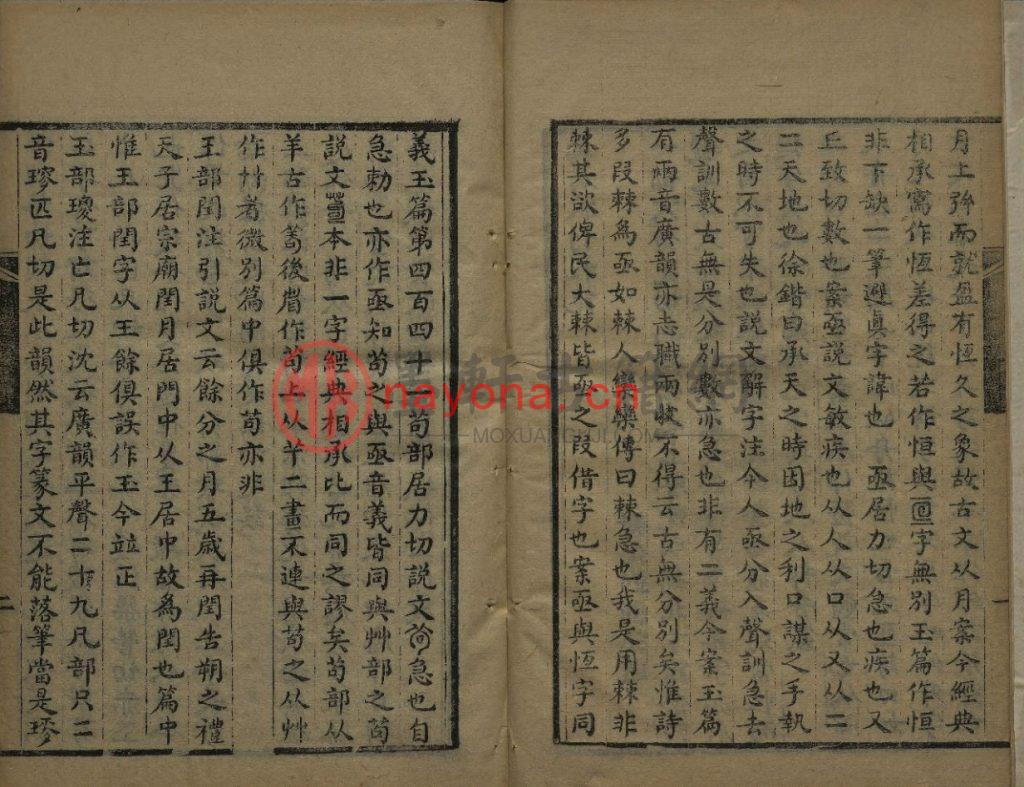 月上弦而就盈有恆久之象故古文从月案今經典
相承寫作恆差得之若作恒與亘字無別玉篇作恒
非下缺一筆避眞字諱也 亟居力切急也疾也又
丘致切數也案亟說文敏疾也从人从口从又从二
二天地也徐鍇曰承天之時因地之利口謀之手執
之時不可失也說文解字注今人亟分入聲訓急去
聲訓數古無是分別數亦急也非有二義今案玉篇
有兩音廣韻亦志職兩收不得云古無分別矣惟詩
多叚棘為亟如棘人欒欒傳曰棘急也我是用棘非
棘其欲俾民大棘皆亟之叚借字也案亟與恆字同
義玉篇第四百四十一茍部居力切說文茍急也自
急勅也亦作亟知茍之與亟音義皆同與艸部之苟
說文本非一字經典相承比而同之謬矣茍部从
羊古作後眉作茍上从丫二畫不連與苟之从艸
作艹者微別篇中俱作苟亦非
王部閏注引說文云餘分之月五歲再閏告朔之禮
天子居宗廟閏月居門中从王居中故為閏也篇中
惟王部閏字从王餘俱誤作玉今竝正
玉部瓊注亡凡切沈云廣韻平聲二十九凡部只二
音匹凡切是此韻然其字篆文不能落筆當是
nayona.cn
MOXUAN